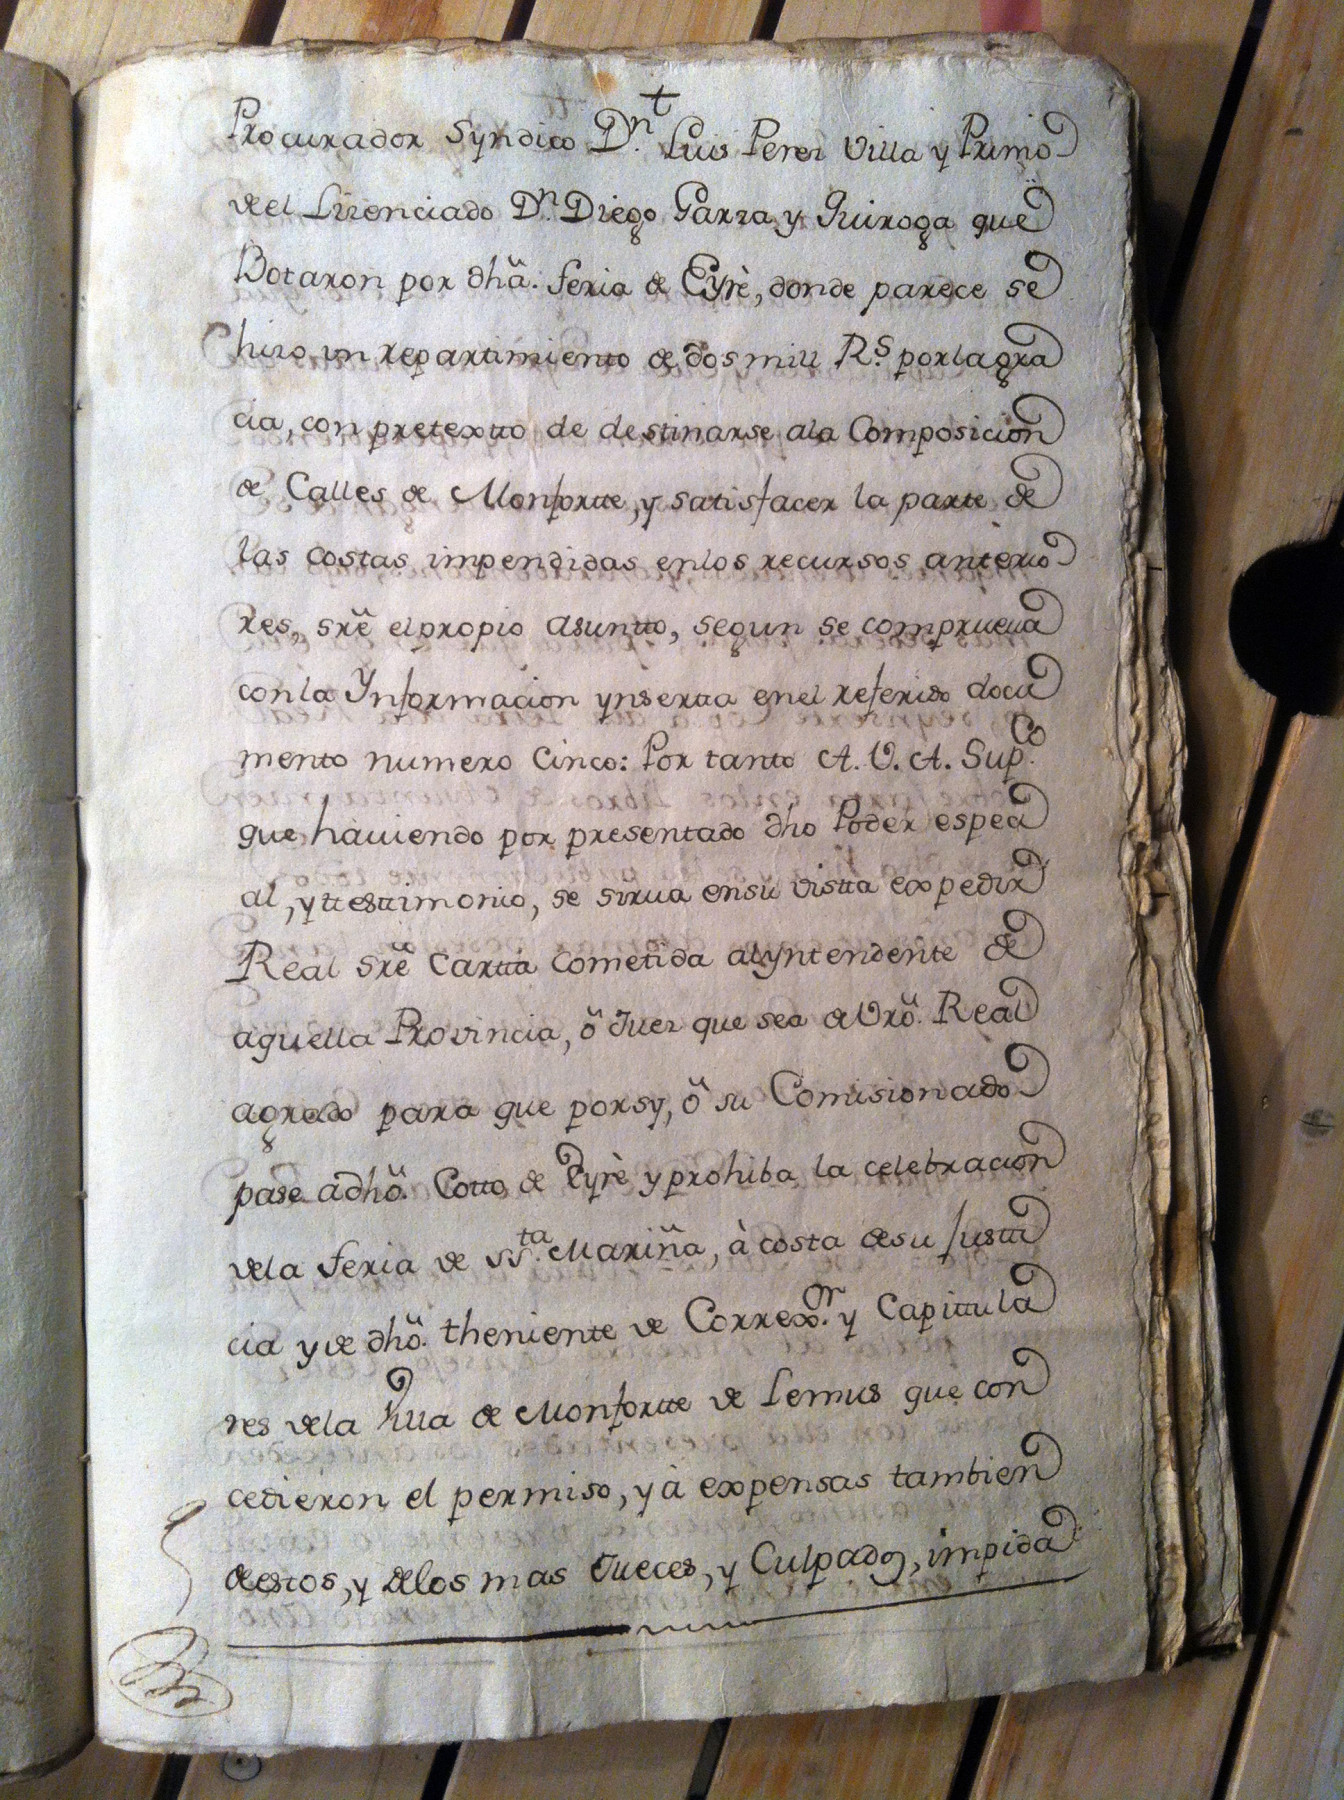 †
Procurador Syndico Dn. Luis Perez Villa y Primo
del Lizenciado Dn. Diego Garza y Quiroga que
Botaron por dhã. feria de Eyrè, donde parece se
hizo un repartimiento de dos mill Rs. por la gra
cia, con pretextto de destinarse ala Composicion
de Calles de Monfortte, y satisfacer la parte de
las costas impendidas enlos recursos anterio
res, srẽ el propio asuntto, segun se comprueua
con la Ynformacion ynsertta enel referido docu
mento numero Cinco: Por tanto A. V. A. Supco.
que hàuiendo por presentado dho Poder espeći
al, y ttesttimonio, se sirua ensu vistta expedir
Real srẽ Cartta Cometida alyntendente de
aquella Provincia, õ Juez que sea de Vrõ. Real
agrado para que porsy, õ su Comisionado
pase adhõ. Cotto de Eyrè y prohiba la celebracion
dela feria de Sta. Mariña, à costa desu Justi
cia y de dhõ. theniente de Correxor. y Capittula
res dela Villa de Monfortte de Lemus que con
cedieron el permiso, y à expensas tambien
deestos, y delos mas Jueces, y Culpados, impida